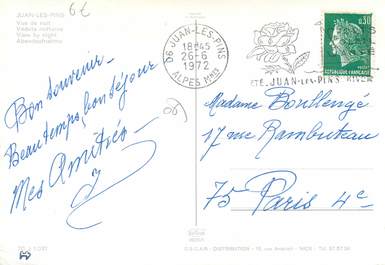 JUAN-LES-PINS
Vue de nuit
Veduta notturna
View by night
Abendaufnahme
6€
06 JUAN-LES-PINS
18H45
26-6
1972
ALPES MMES
ETE. JUAN-LES-PINS HIVER
0,30
REPUBLIQUE FRANÇAISE
Bon souvenir
Beau temps, bon séjour
Mes Amitiés
06
Madame Boullengé
17 rue Rambuteau
75 Paris 4e